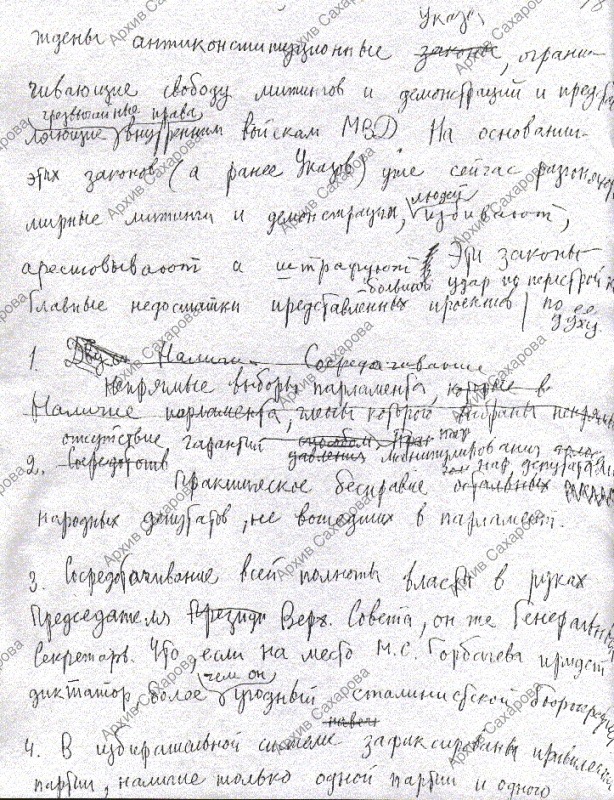 Указы
ждены антиконституционные законы, ограни-
чивающие свободу митингов и демонстраций и предос
чрезвычайные права
ляющие внутренним войскам МВД На основании
этих законов (а ранее Указов) уже сейчас разгоняют
людей
мирные митинги и демонстрации, избивают,
арестовывают и штрафуют Эти законы
большой удар по перестройке
Главные недостатки представленных проектов по её духу
1. Наличие Сосредачивание
Непрямые выборы парламента, которые в
Наличие парламента, члены которой выбраны непрям
отсутствие гарантий способом
2. Сосредоточ давления манипулирования
над депутатами
Практическое бесправие остальных
народных депутатов, не вошедших в парламент.
3. Сосредотачивание всей полноты власти в руках
Председателя Президи Верх. Совета, он же Генеральный
Секретарь. Что, если на место М.С. Горбачева придет
чем он
диктатор, более угодный сталинистской бюрократии
4. В избирательной системе зафиксированы привилегии
партии, наличие только одной партии и одного
Архив Сахарова